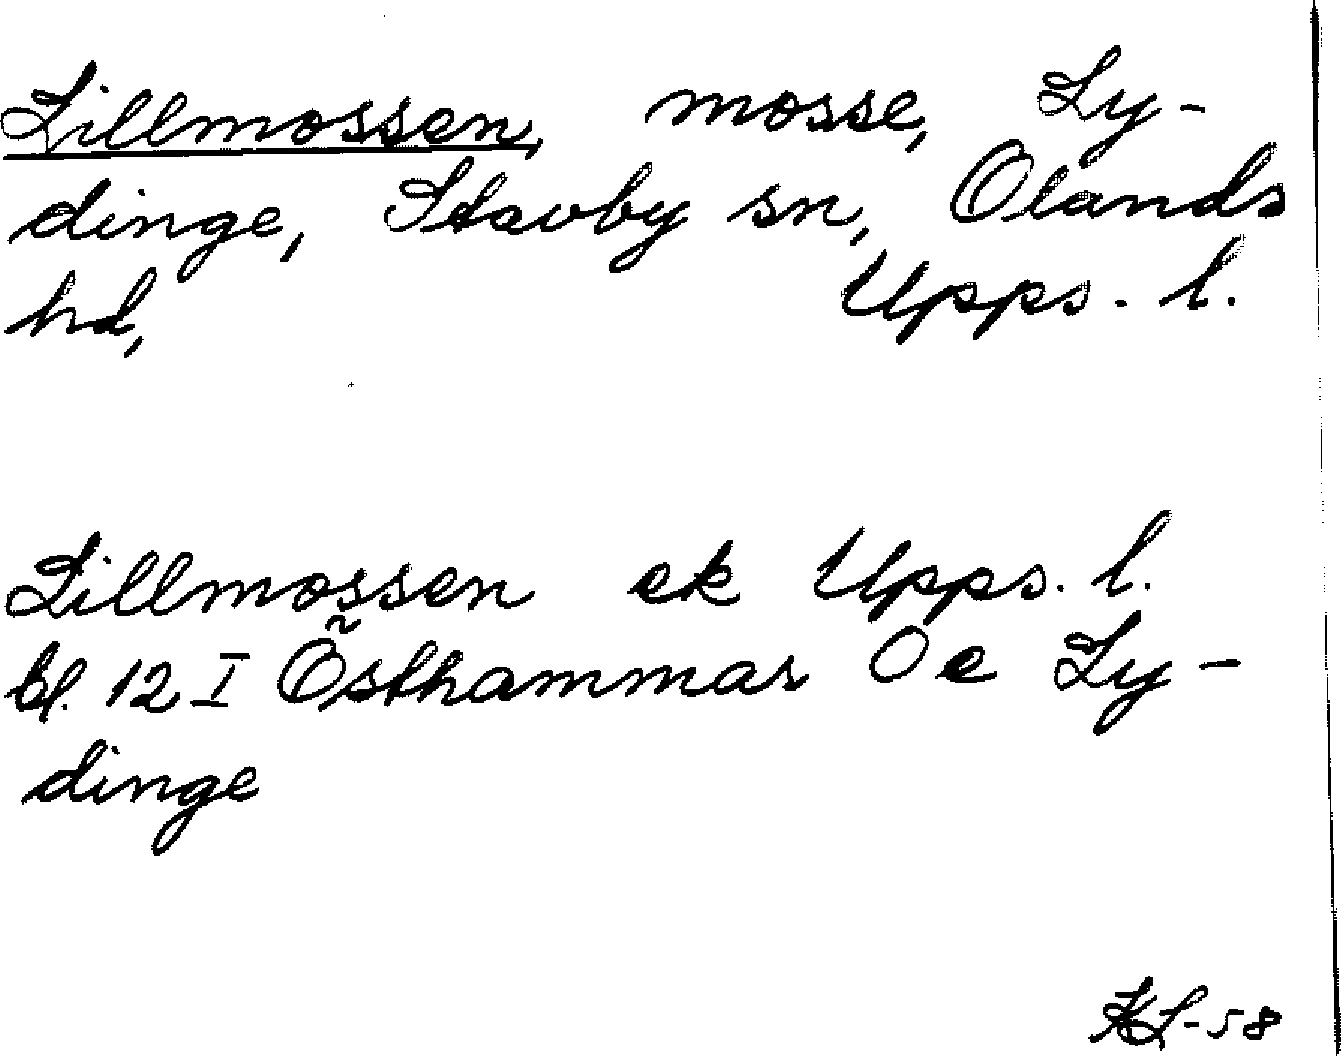 Lillmossen, mosse, Ly-
dinge, Stavby sn, Olands
hd, Upps. l.
Lillmossen ek Upps. l.
bl. 12 I Östhammar Oe Ly-
dinge
KL-58